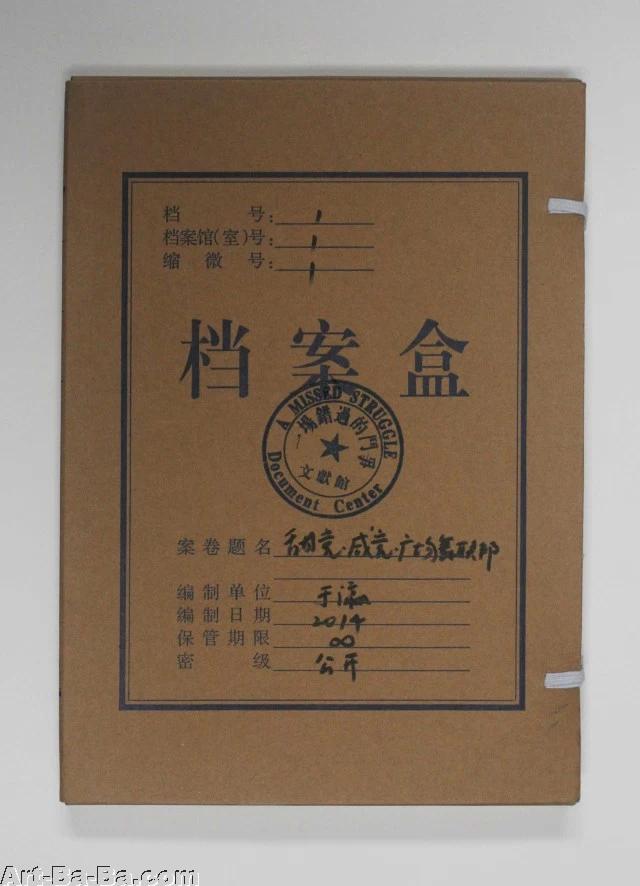 档号: 1
档案馆(室)号: 1
缩微号: 1
档案盒
A MISSED STRUGGLE
一場錯過的鬥爭
文獻館
Document Center
案卷题名 甜党·咸党·广场舞联邦
编制单位 于瀛
编制日期 2014
保管期限 ∞
密级 公开
Art-Ba-Ba.com